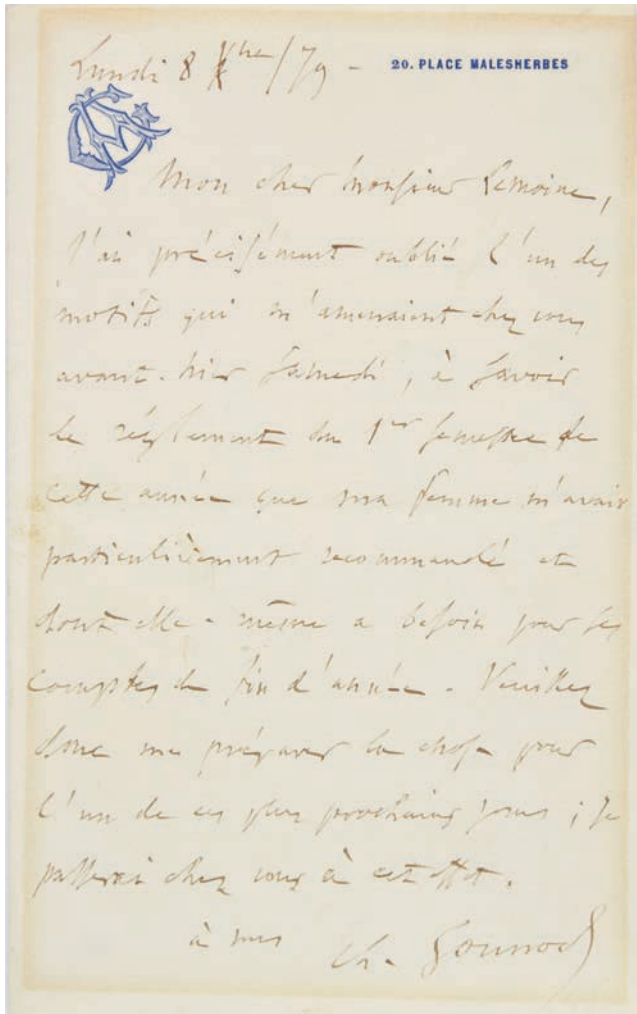 Lundi 8 Xbre/79 -
20. PLACE MALESHERBES
Mon cher Monsieur Lemoine,
J'ai précisément oublié l'un des
motifs qui m'amenaient chez vous
avant-hier Samedi, à savoir
le règlement du 1er semestre de
cette année que ma femme m'avait
particulièrement recommandé et
dont elle-même a besoin pour ses
comptes de fin d'année. Veuillez
donc me préparer la chose pour
l'un de ces plus prochains jours ; je
passerai chez vous à cet effet.
à vous
Ch. Gounod